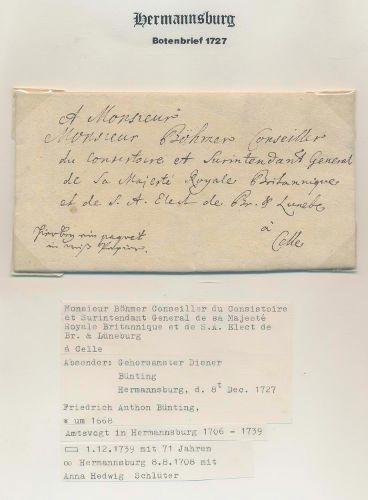 Hermannsburg
Botenbrief 1727
A Monsieur
Monsieur Böhmer Conseiller
du Consistoire et Surintendant General
de Sa Majesté Royale Britannique
et de S. A. Elect de Br. & Luneb.
à
Celle
hierbey ein paquet
in weiß Papier.
Monsieur Böhmer Conseiller du Consistoire
et Surintendant General de sa Majesté
Royale Britannique et de S.A. Elect de
Br. & Lüneburg
á Celle
Absender: Gehorsamster Diener
Bünting
Hermannsburg, d. 8t Dec. 1727
Friedrich Anthon Bünting,
* um 1668
Amtsvogt in Hermannsburg 1706 - 1739
▭ 1.12.1739 mit 71 Jahren
∞ Hermannsburg 8.8.1708 mit
Anna Hedwig Schlüter